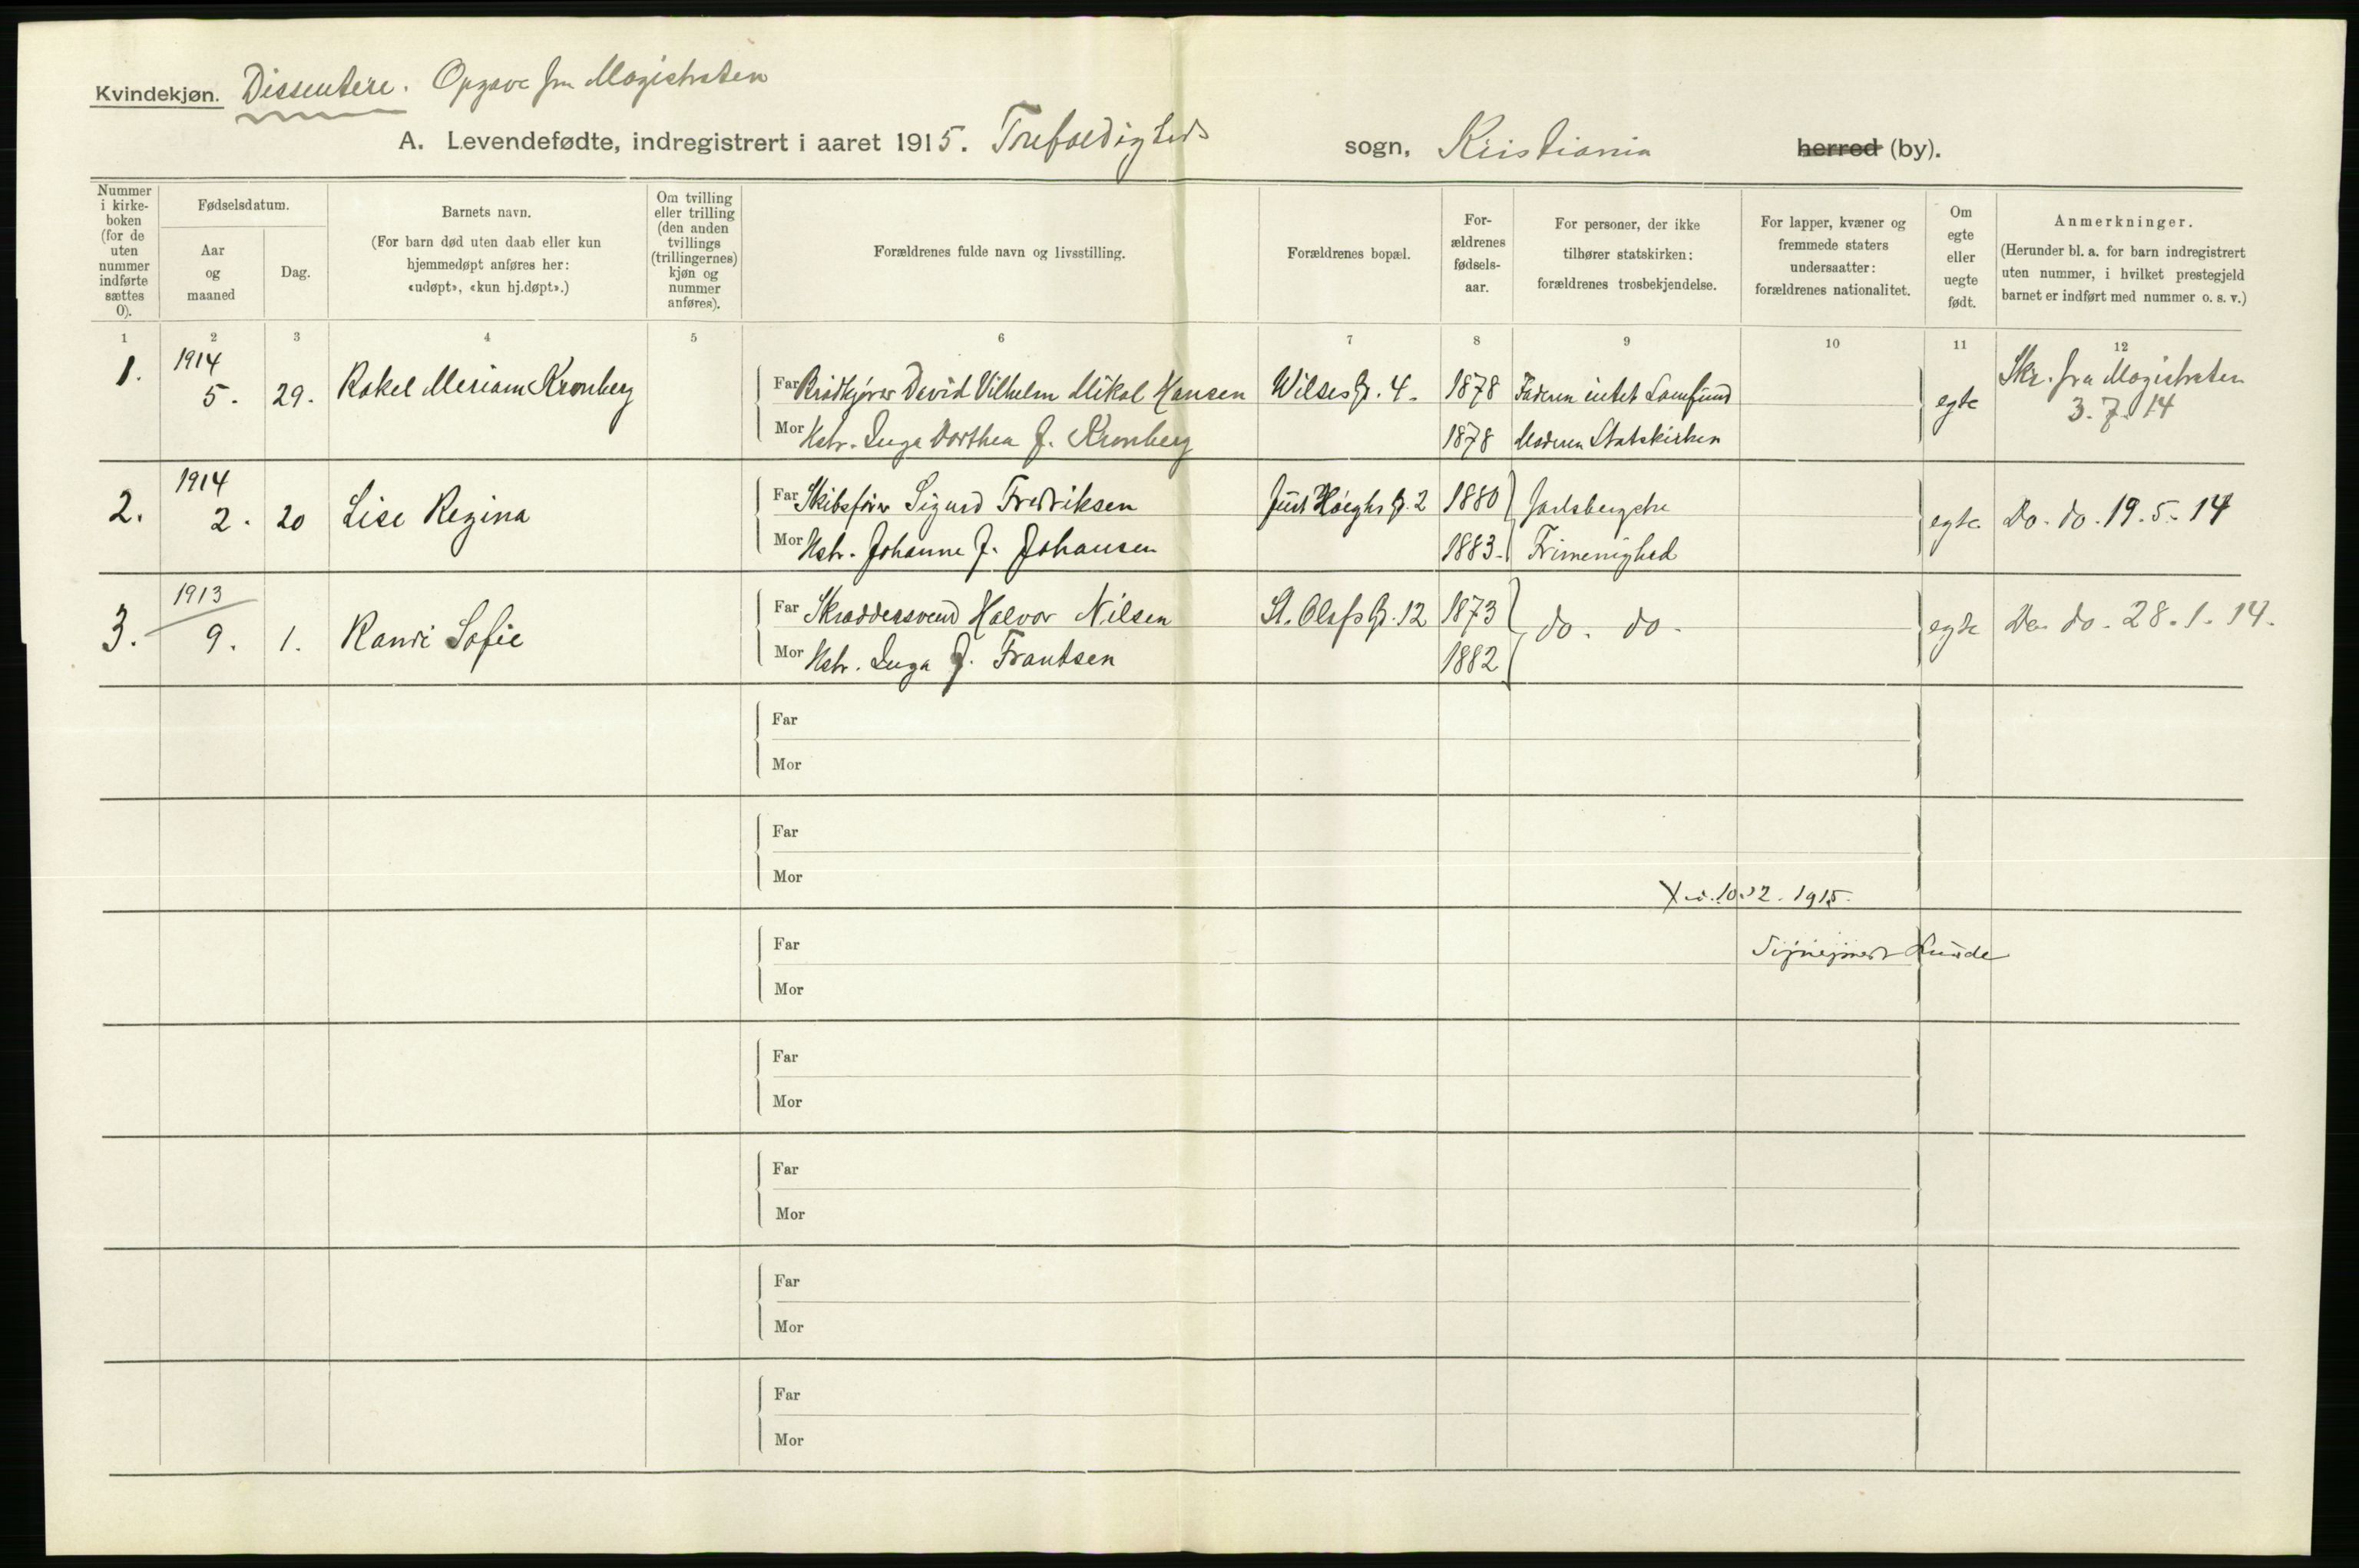 Kvindekjøn. Dissentere. Opgave fra Magistraten
A. Levendefødte, indregistrert i aaret 1915. Trefoldigheds sogn, Kristiania herred (by).
Nummer i kirke-boken (for de uten nummer indførte sættes 0).
Fødselsdatum.
Aar og maaned
Dag.
Barnets navn.
(For barn død uten daab eller kun hjemmedøpt anføres her: «udøpt», «kun hj.døpt».)
Om tvilling eller trilling (den anden tvillings (trillingernes) kjøn og nummer anføres).
Forældrenes fulde navn og livsstilling.
Forældrenes bopæl.
For-ældrenes fødsels-aar.
For personer, der ikke tilhører statskirken: forældrenes trosbekjendelse.
For lapper, kvæner og fremmede staters undersaatter: forældrenes nationalitet.
Om egte eller uegte født.
Anmerkninger.
(Herunder bl. a. for barn indregistrert uten nummer, i hvilket prestegjeld barnet er indført med nummer o. s. v.)
1 2 3 4 5 6 7 8 9 10 11 12
1. 1914 5. 29. Rakel Meriam Kronberg
Far Brødkjører David Vilhelm Mikal Hansen Wilses G. 4. 1878 Faderen intet Samfund
Mor Hstr. Inga Dorthea f. Kronberg 1878 Moderen Statskirken
egte Skr. fra Magistraten
3. 7. 14
2. 1914 2. 20 Lise Regina
Far Skibsfører Sigurd Fredriksen Just Høeghs G. 2 1880 Jarlsbergske
Mor Hstr. Johanne f. Johansen 1883. Frimenighed
egte Do. do. 19. 5. 14
3. 1913 9. 1. Randi Sofie
Far Skræddersvend Halvor Nilsen St. Olafs G. 12 1873 do. do.
Mor Hstr. Inga f. Frantsen 1882
egte Do. do. 28. 1. 14.
Far
Mor
Far
Mor
1915.
Far
Mor
Far
Mor
Far
Mor
Far
Mor
Far
Mor